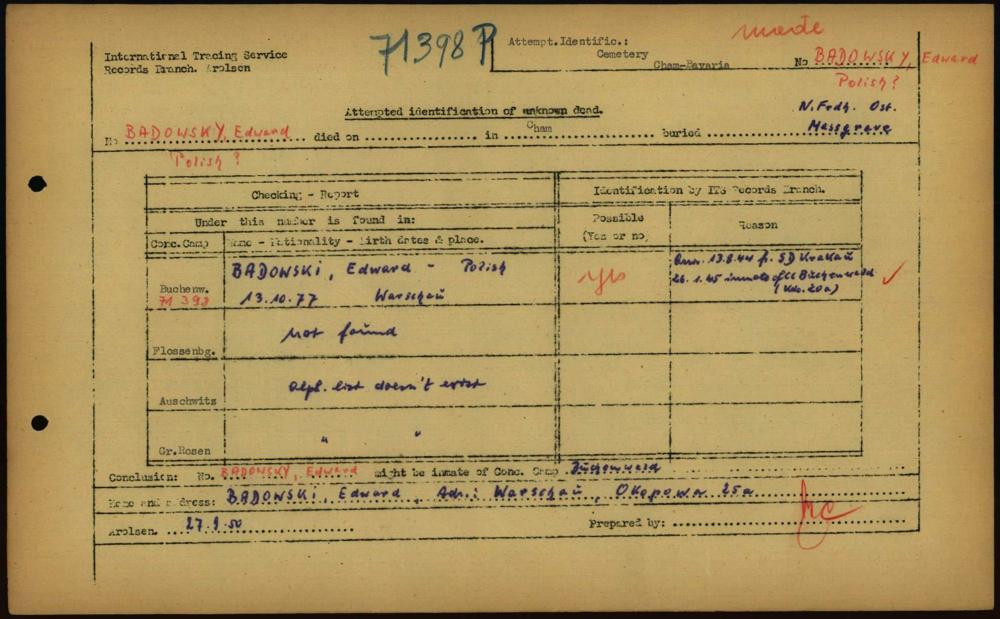 71398 P
made
International Tracing Service
Records Branch. Arolsen
Attempt.Identific.:
Cemetery
Cham-Bavaria
No BADOWSKY, Edward
Polish?
Attempted identification of unknown dead.
N. Frdh. Ost.
Massgrave
No BADOWSKY, Edward died on in Cham buried
Polish?
Checking - Report
Identification by ITS Records Branch.
Under this number is found in:
Possible
(Yes or no)
Reason
Conc.Camp
Name - Nationality - Birth dates & place.
Buchenw.
71 398
BADOWSKI, Edward - Polish
13.10.77 Warschau
yes
13.8.44 f. SD Krakau
26.1.45 inmate of CC Buchenwald
(Kdo. 20a)
Flossenbg.
not found
Auschwitz
alph. list doesn't exist
Gr.Rosen
" "
Conclusion: No. BADOWSKY, Edward might be inmate of Conc. Camp Buchenwald
Name and address: BADOWSKI, Edward, Adr.: Warschau, Okopowa 25a
Arolsen. 27.9.50
Prepared by: